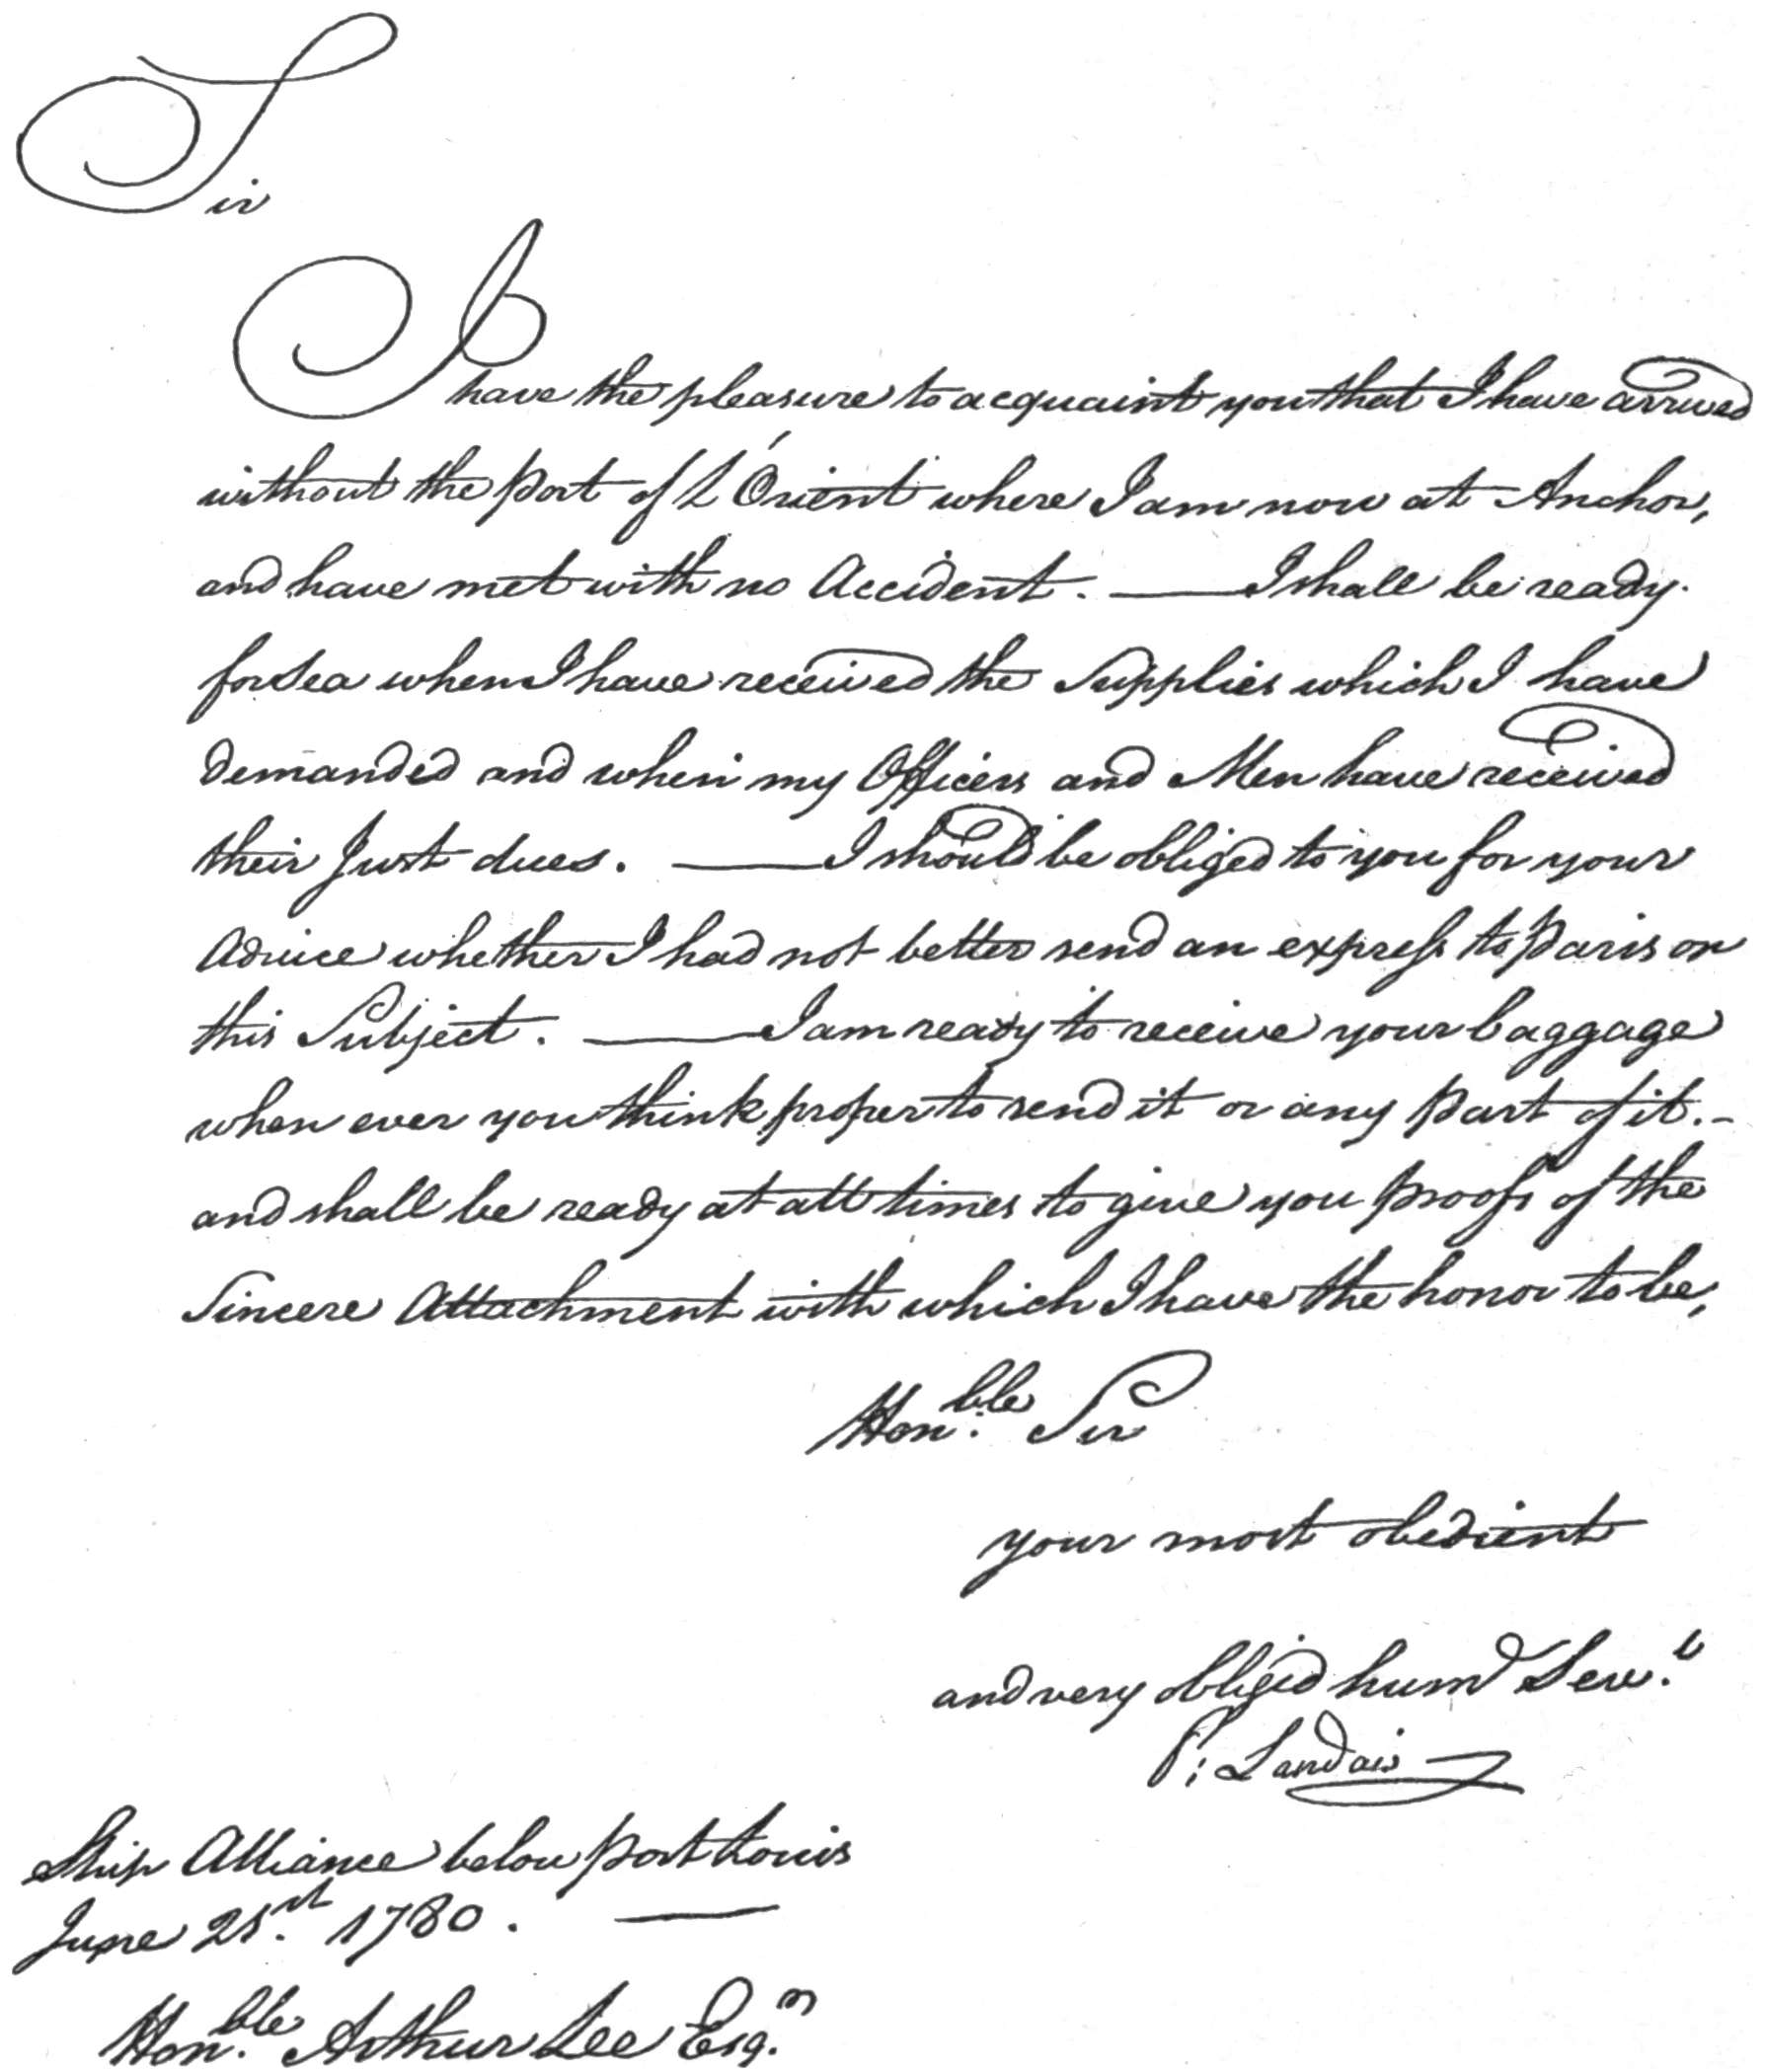 Sir
I
have the pleasure to acquaint you that I have arrived
without the Port of L'Orient where I am now at Anchor,
and have met with no Accident. — I shall be ready
for Sea when I have received the Supplies which I have
demanded and when my Officers and Men have received
their Just dues. — I should be obliged to you for your
Advice whether I had not better send an express to Paris on
this Subject. — I am ready to receive your baggage
when ever you think proper to send it or any Part of it. -
and shall be ready at all times to give you Proofs of the
Sincere Attachment with which I have the honor to be,
Hon.ble Sir
your most obedient
and very obliged hum Serv.t
P: Landais
Ship Alliance below Port Louis
June 21.st 1780. —
Hon.ble Arthur Lee Esq.r